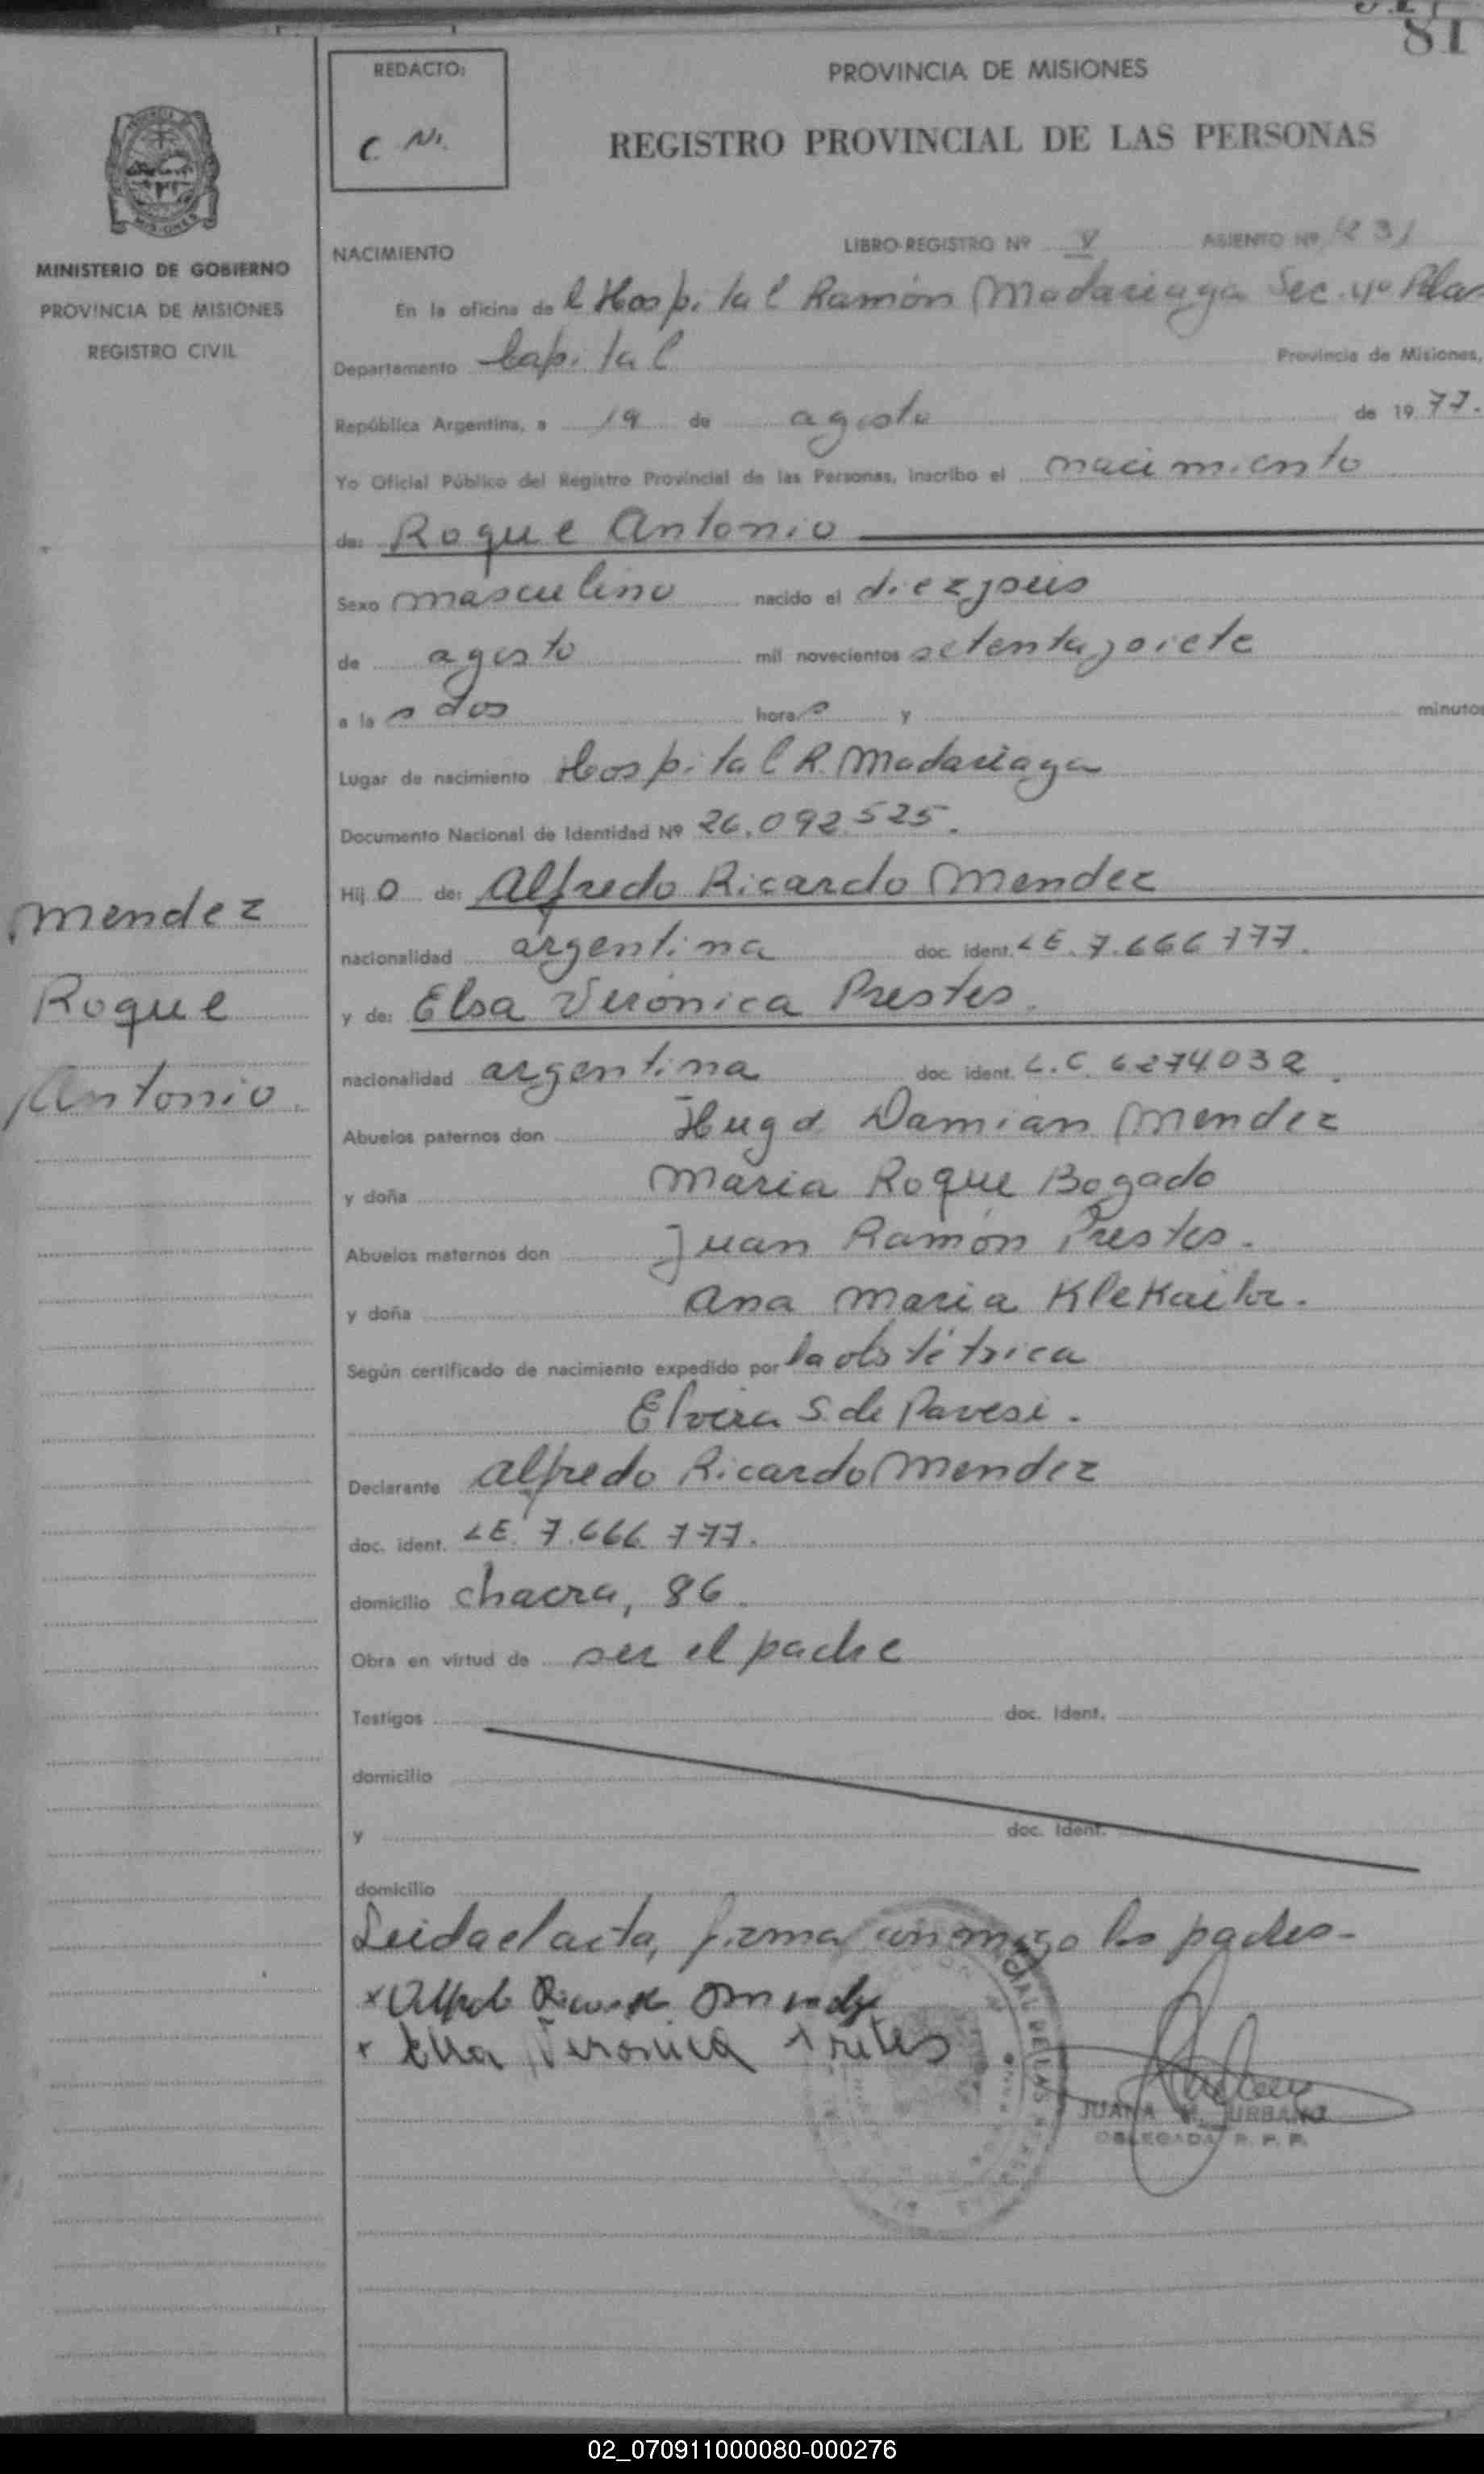 81
REDACTO:
C. N.
PROVINCIA DE MISIONES
REGISTRO PROVINCIAL DE LAS PERSONAS
MINISTERIO DE GOBIERNO
PROVINCIA DE MISIONES
REGISTRO CIVIL
NACIMIENTO
LIBRO-REGISTRO Nº V ASIENTO Nº
En la oficina de l Hospital Ramón Madariaga Sec. 4º
Departamento Capital Provincia de Misiones,
República Argentina, a 19 de agosto de 1977.
Yo Oficial Público del Registro Provincial de las Personas, inscribo el nacimiento
de: Roque Antonio
Sexo masculino nacido el diezyseis
de agosto mil novecientos setentaysiete
a las dos horas y minutos
Lugar de nacimiento Hospital R. Madariaga
Documento Nacional de Identidad Nº 26.092.525.
Hijo de: Alfredo Ricardo Mendez
nacionalidad argentina doc. ident. LE. 7.666.777.
y de: Elsa Verónica Prestes.
nacionalidad argentina doc. ident. L.C. 6274.032.
Abuelos paternos don Hugo Damian Mendez
y doña Maria Roque Bogado
Abuelos maternos don Juan Ramón Prestes.
y doña Ana Maria
Según certificado de nacimiento expedido por la obstétrica
Elvira S. de Pavesi.
Declarante Alfredo Ricardo Mendez
doc. ident. LE. 7.666.777.
domicilio chacra, 86.
Obra en virtud de ser el padre
Testigos doc. Ident.
domicilio
y doc. Ident.
domicilio
Leida el acta, firma conmigo los padres-
x Alfredo Ricardo Mendez
x Elsa Veronica Prestes
JUANA URBANO
DELEGADA R. P. P.
Mendez
Roque
Antonio.
02_070911000080-000276